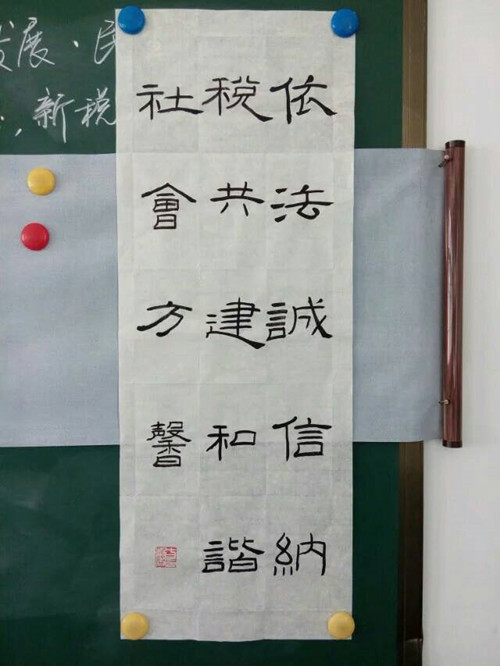 依法誠信納
税共建和諧
社會方馨
发展·民
，新税